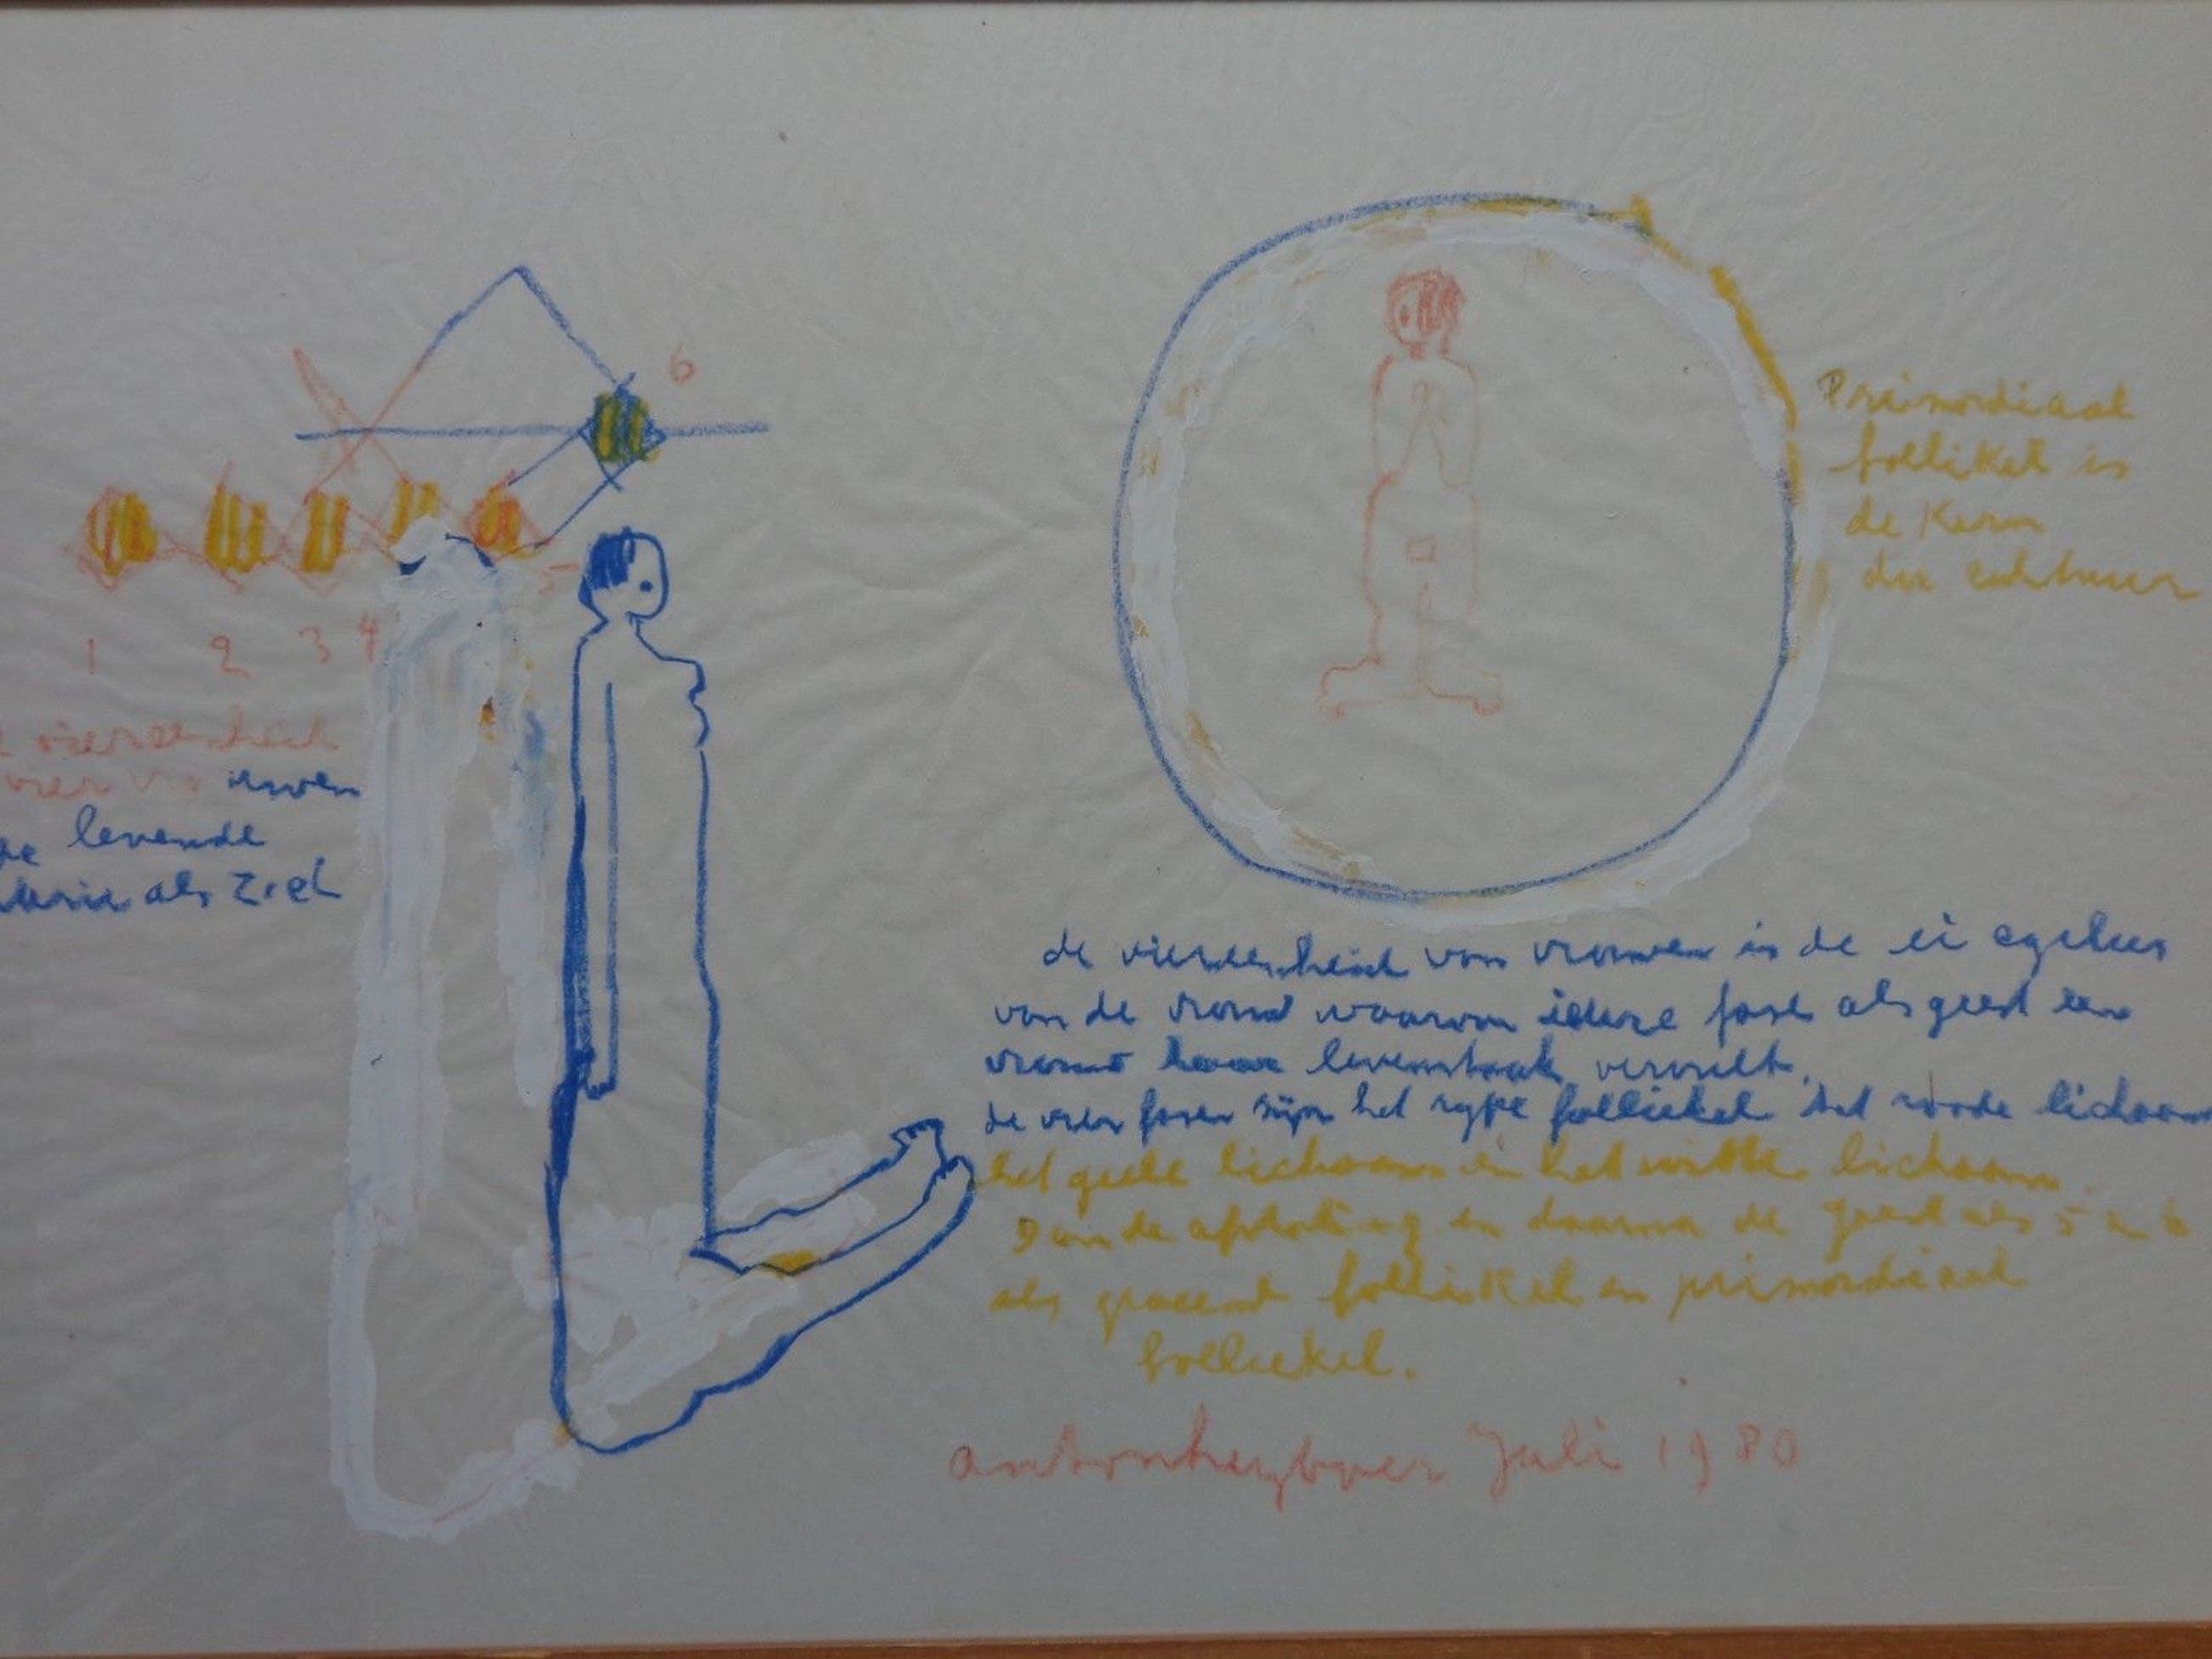 6
5
1 2 3 4
vierdenheid
vier
levende
als ziel
Primordiaal
follikel is
de Kern
der
de vierdenheid van vrouwen is de ei cyclus
van de vrouw waarom iedere fase als geest een
vrouw haar levenstaak vervult.
de vier fasen zijn het rype follickel het roode lichaam
het geele lichaam en het witte lichaam
Dan de afstoting en daarna de geest als 5 en 6
als groeiend follikel en primordiaal
follickel.
antonheyboer Juli 1980